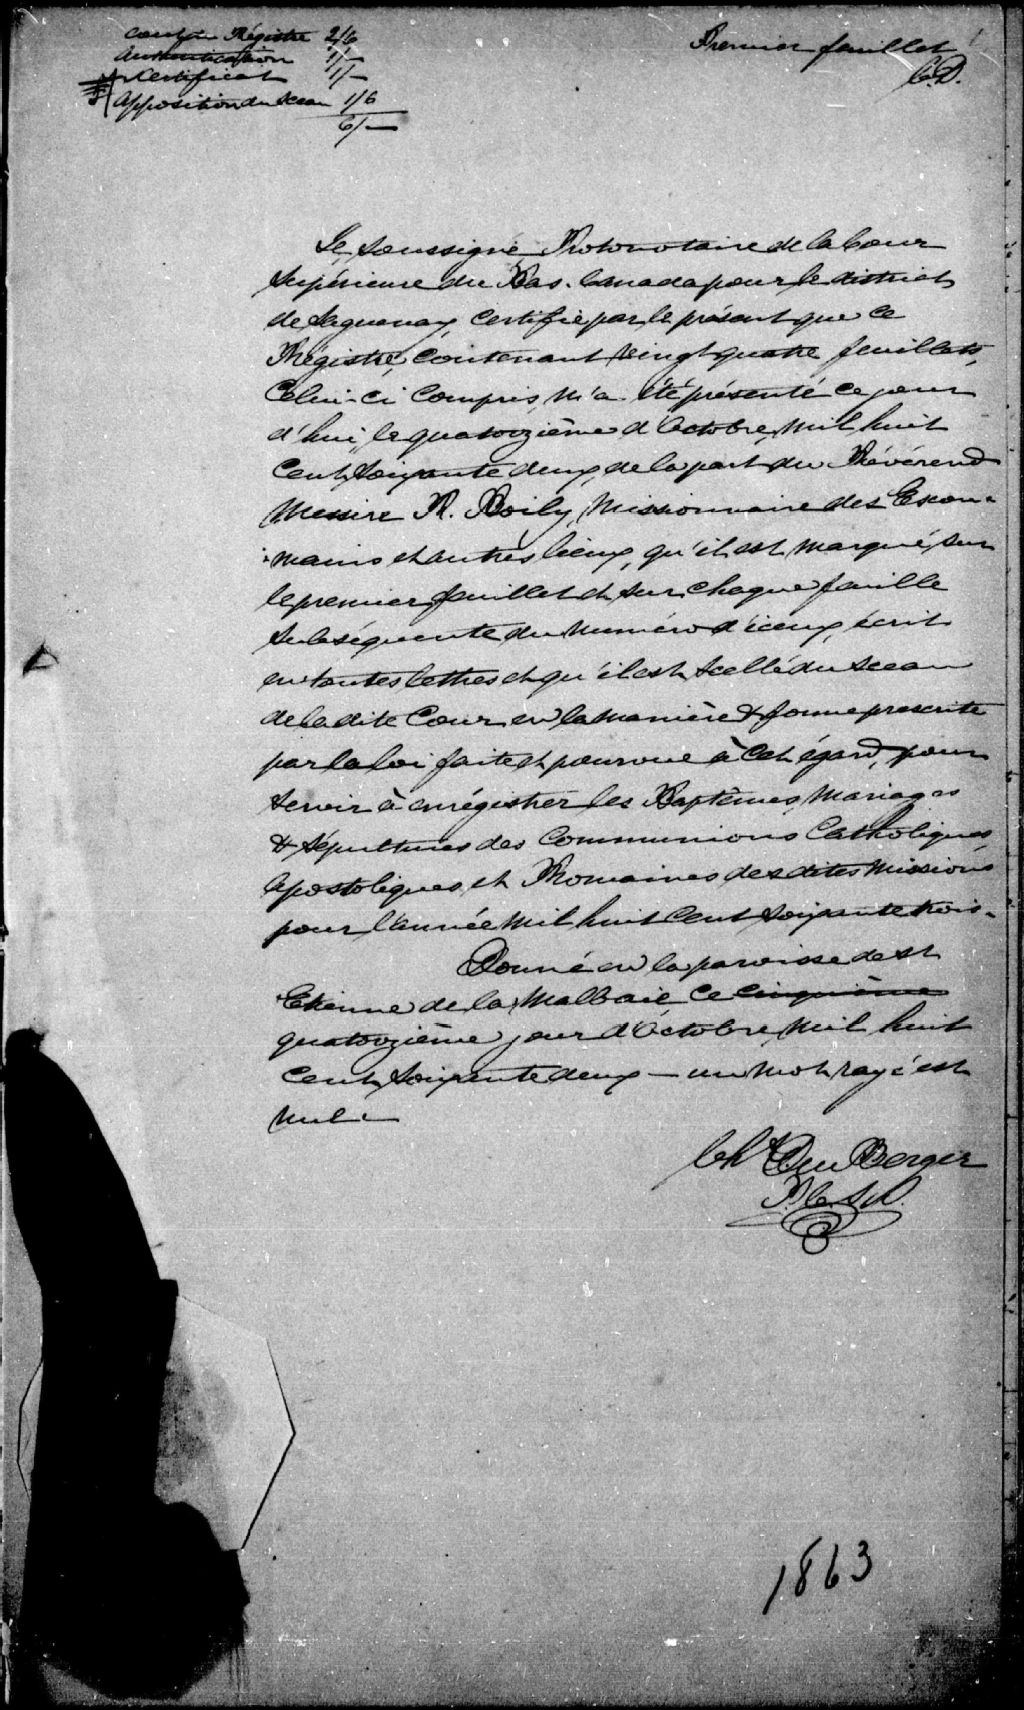 Coût du Régistre 2/6
Authentication 1/-
Certificat 1/-
Apposition du Sceau 1/6
6/-
Premier feuillet
C.D.
Le soussigné Protonotaire de la Cour
Supérieure du Bas-Canada pour le district
de Saguenay, Certifie par le présent que ce
Régistre, Contenant vingt quatre feuillets,
Celui-ci Compris, m'a été présenté ce jour
d'hui, le quatorzième d'Octobre, mil huit
Cent Soixante deux, de la part du Révérend
Messire R. Boily, Missionnaire des Escou-
-mains et autres lieux, qu'il est marqué, sur
le premier feuillet et sur chaque feuille
Subséquente du numéro d'iceux, écrit
en toutes lettres et qu'il est Scellé du Sceau
de la dite Cour en la manière & forme prescrite
par la loi faite et pourvue à cet égard, pour
Servir à enrégistrer les Baptêmes, Mariages
& Sépultures des Communions Catholiques,
Apostoliques, et Romaines des dites Missions
pour l'année Mil huit Cent Soixante trois.
Donné en la paroisse de St
Etienne de la Malbaie Ce cinquième
quatorzième jour d'Octobre, Mil huit
Cent Soixante deux — un mot rayé est
nul
Chs Du Berger
P.C.S.D.
1863